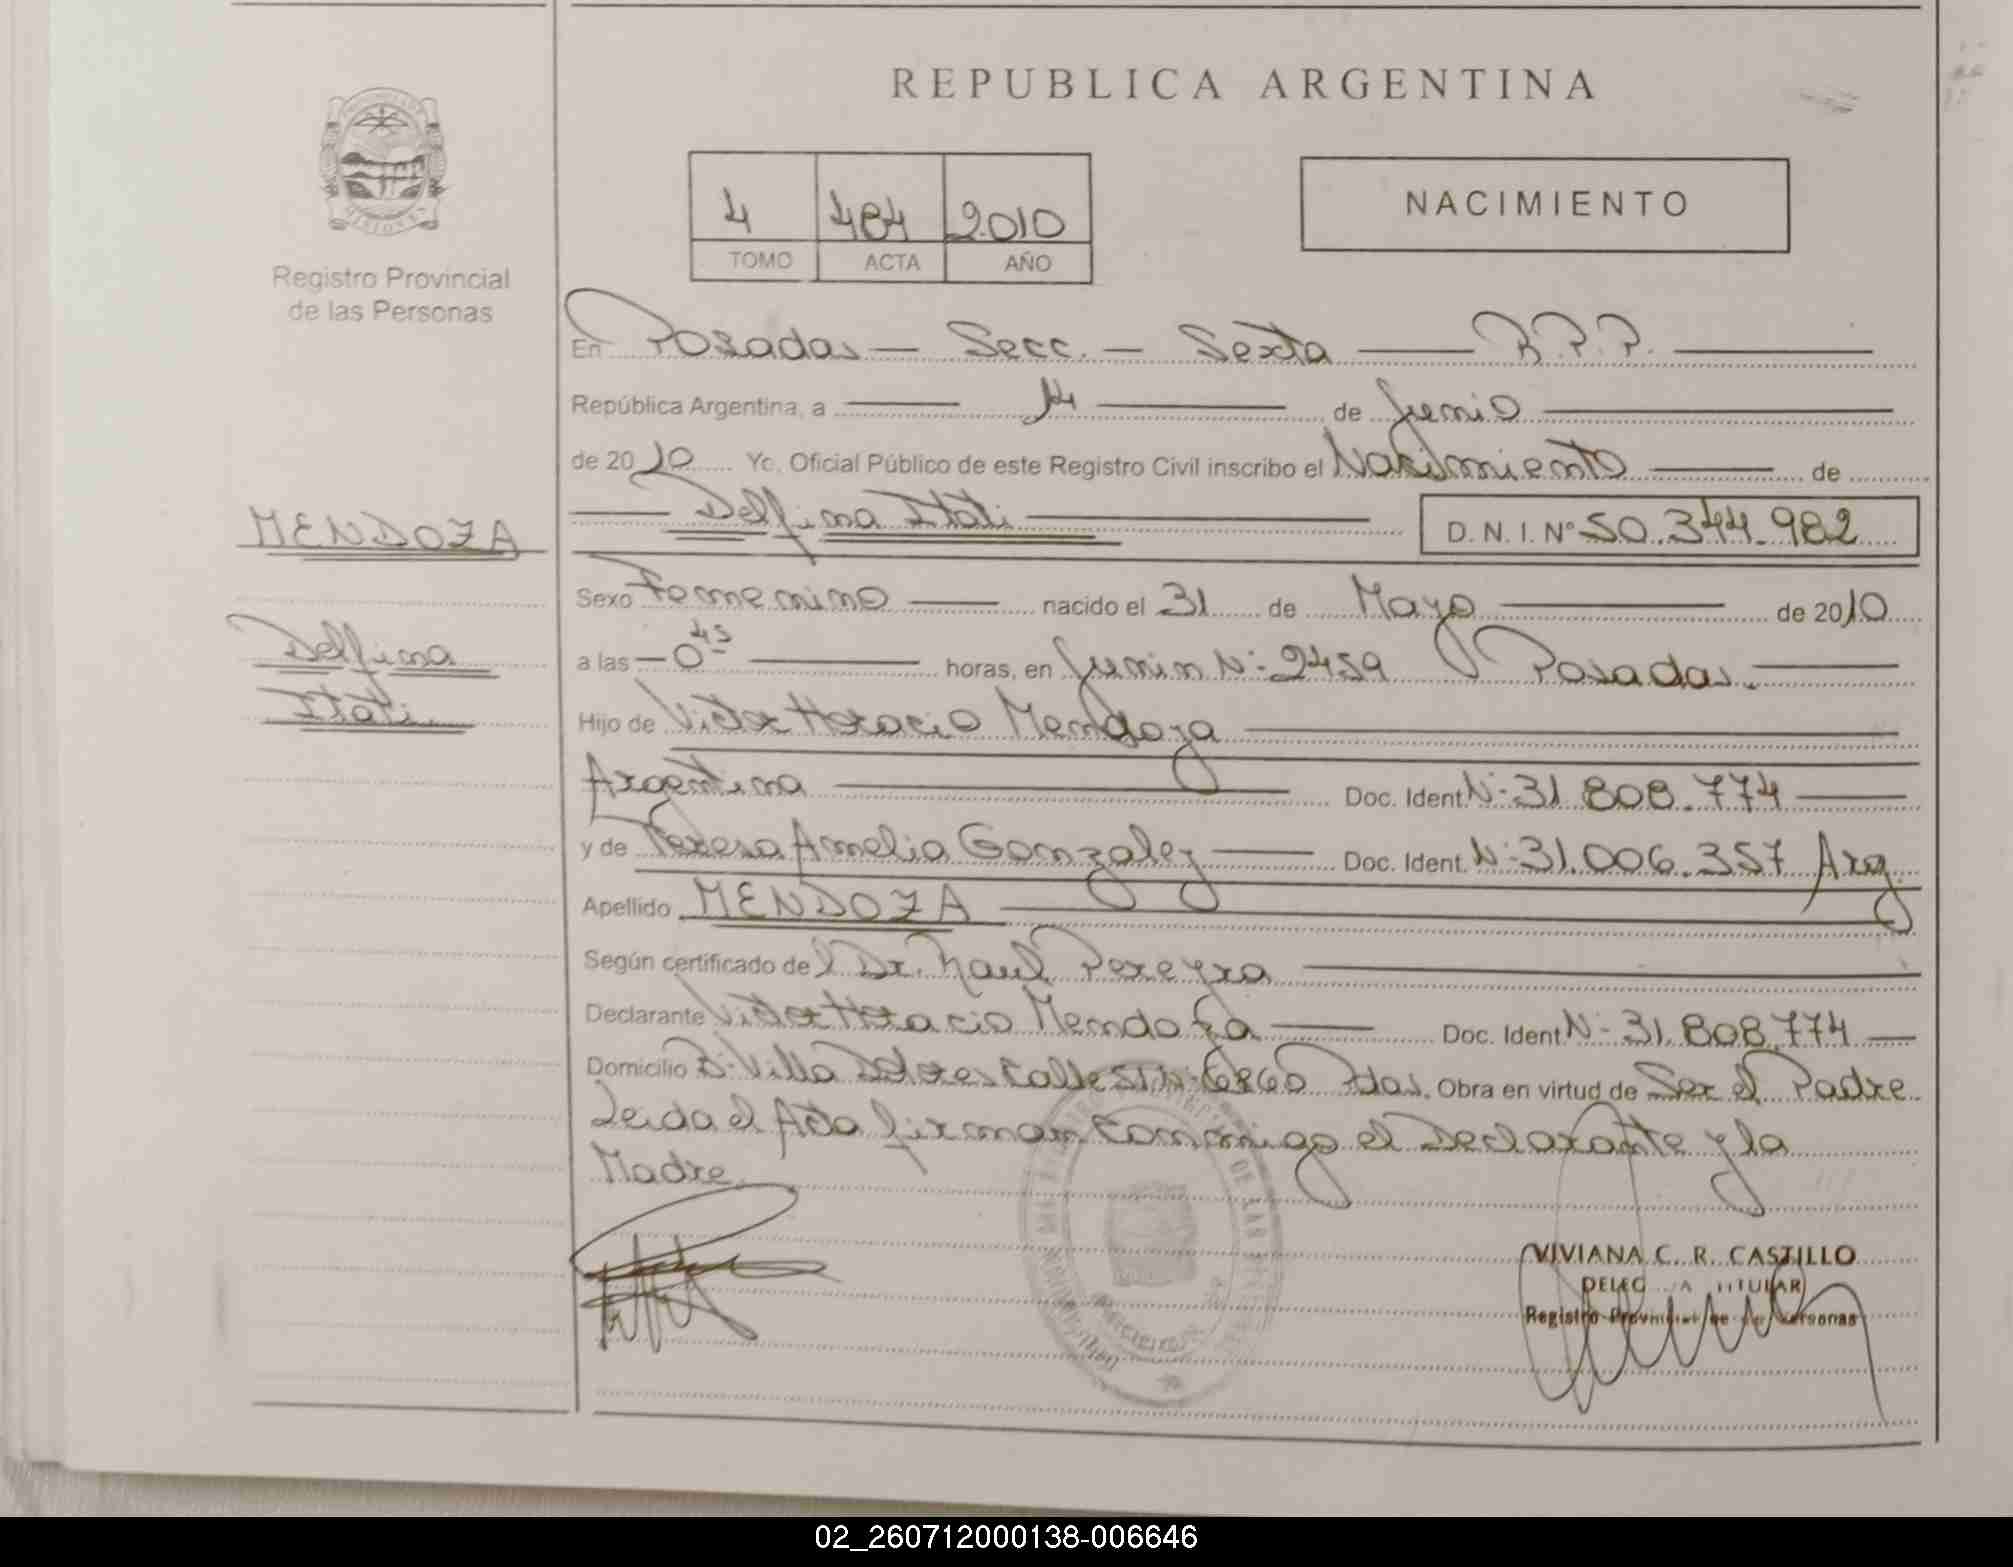 REPUBLICA ARGENTINA
Registro Provincial
de las Personas
4 484 2010
TOMO ACTA AÑO
NACIMIENTO
MENDOZA
Delfina
Itati
En Posadas — Secc. — Sexta — R.P.P. —
República Argentina, a — 14 — de Junio —
de 2010 Yo, Oficial Público de este Registro Civil inscribo el Nacimiento — de
— Delfina Itati — D. N. I. Nº 50.344.982
Sexo Femenino — nacido el 31 de Mayo — de 2010
a las — 0 45 — horas, en Junin Nº 2459 Posadas. —
Hijo de Victor Horacio Mendoza —
Argentina — Doc. Ident Nº 31.808.774 —
y de Teresa Amelia Gonzalez — Doc. Ident. Nº 31.006.357 Arg.
Apellido MENDOZA —
Según certificado del Dr. Raul Pereyra —
Declarante Victor Horacio Mendoza — Doc. Ident Nº 31.808.774 —
Domicilio Bº Villa Calle Nº 6860 Pdas. Obra en virtud de Ser el Padre
Leida el Acta firman conmigo el Declarante y la
Madre.
VIVIANA C. R. CASTILLO
TITULAR
Registro Provincial de las Personas
02_260712000138-006646